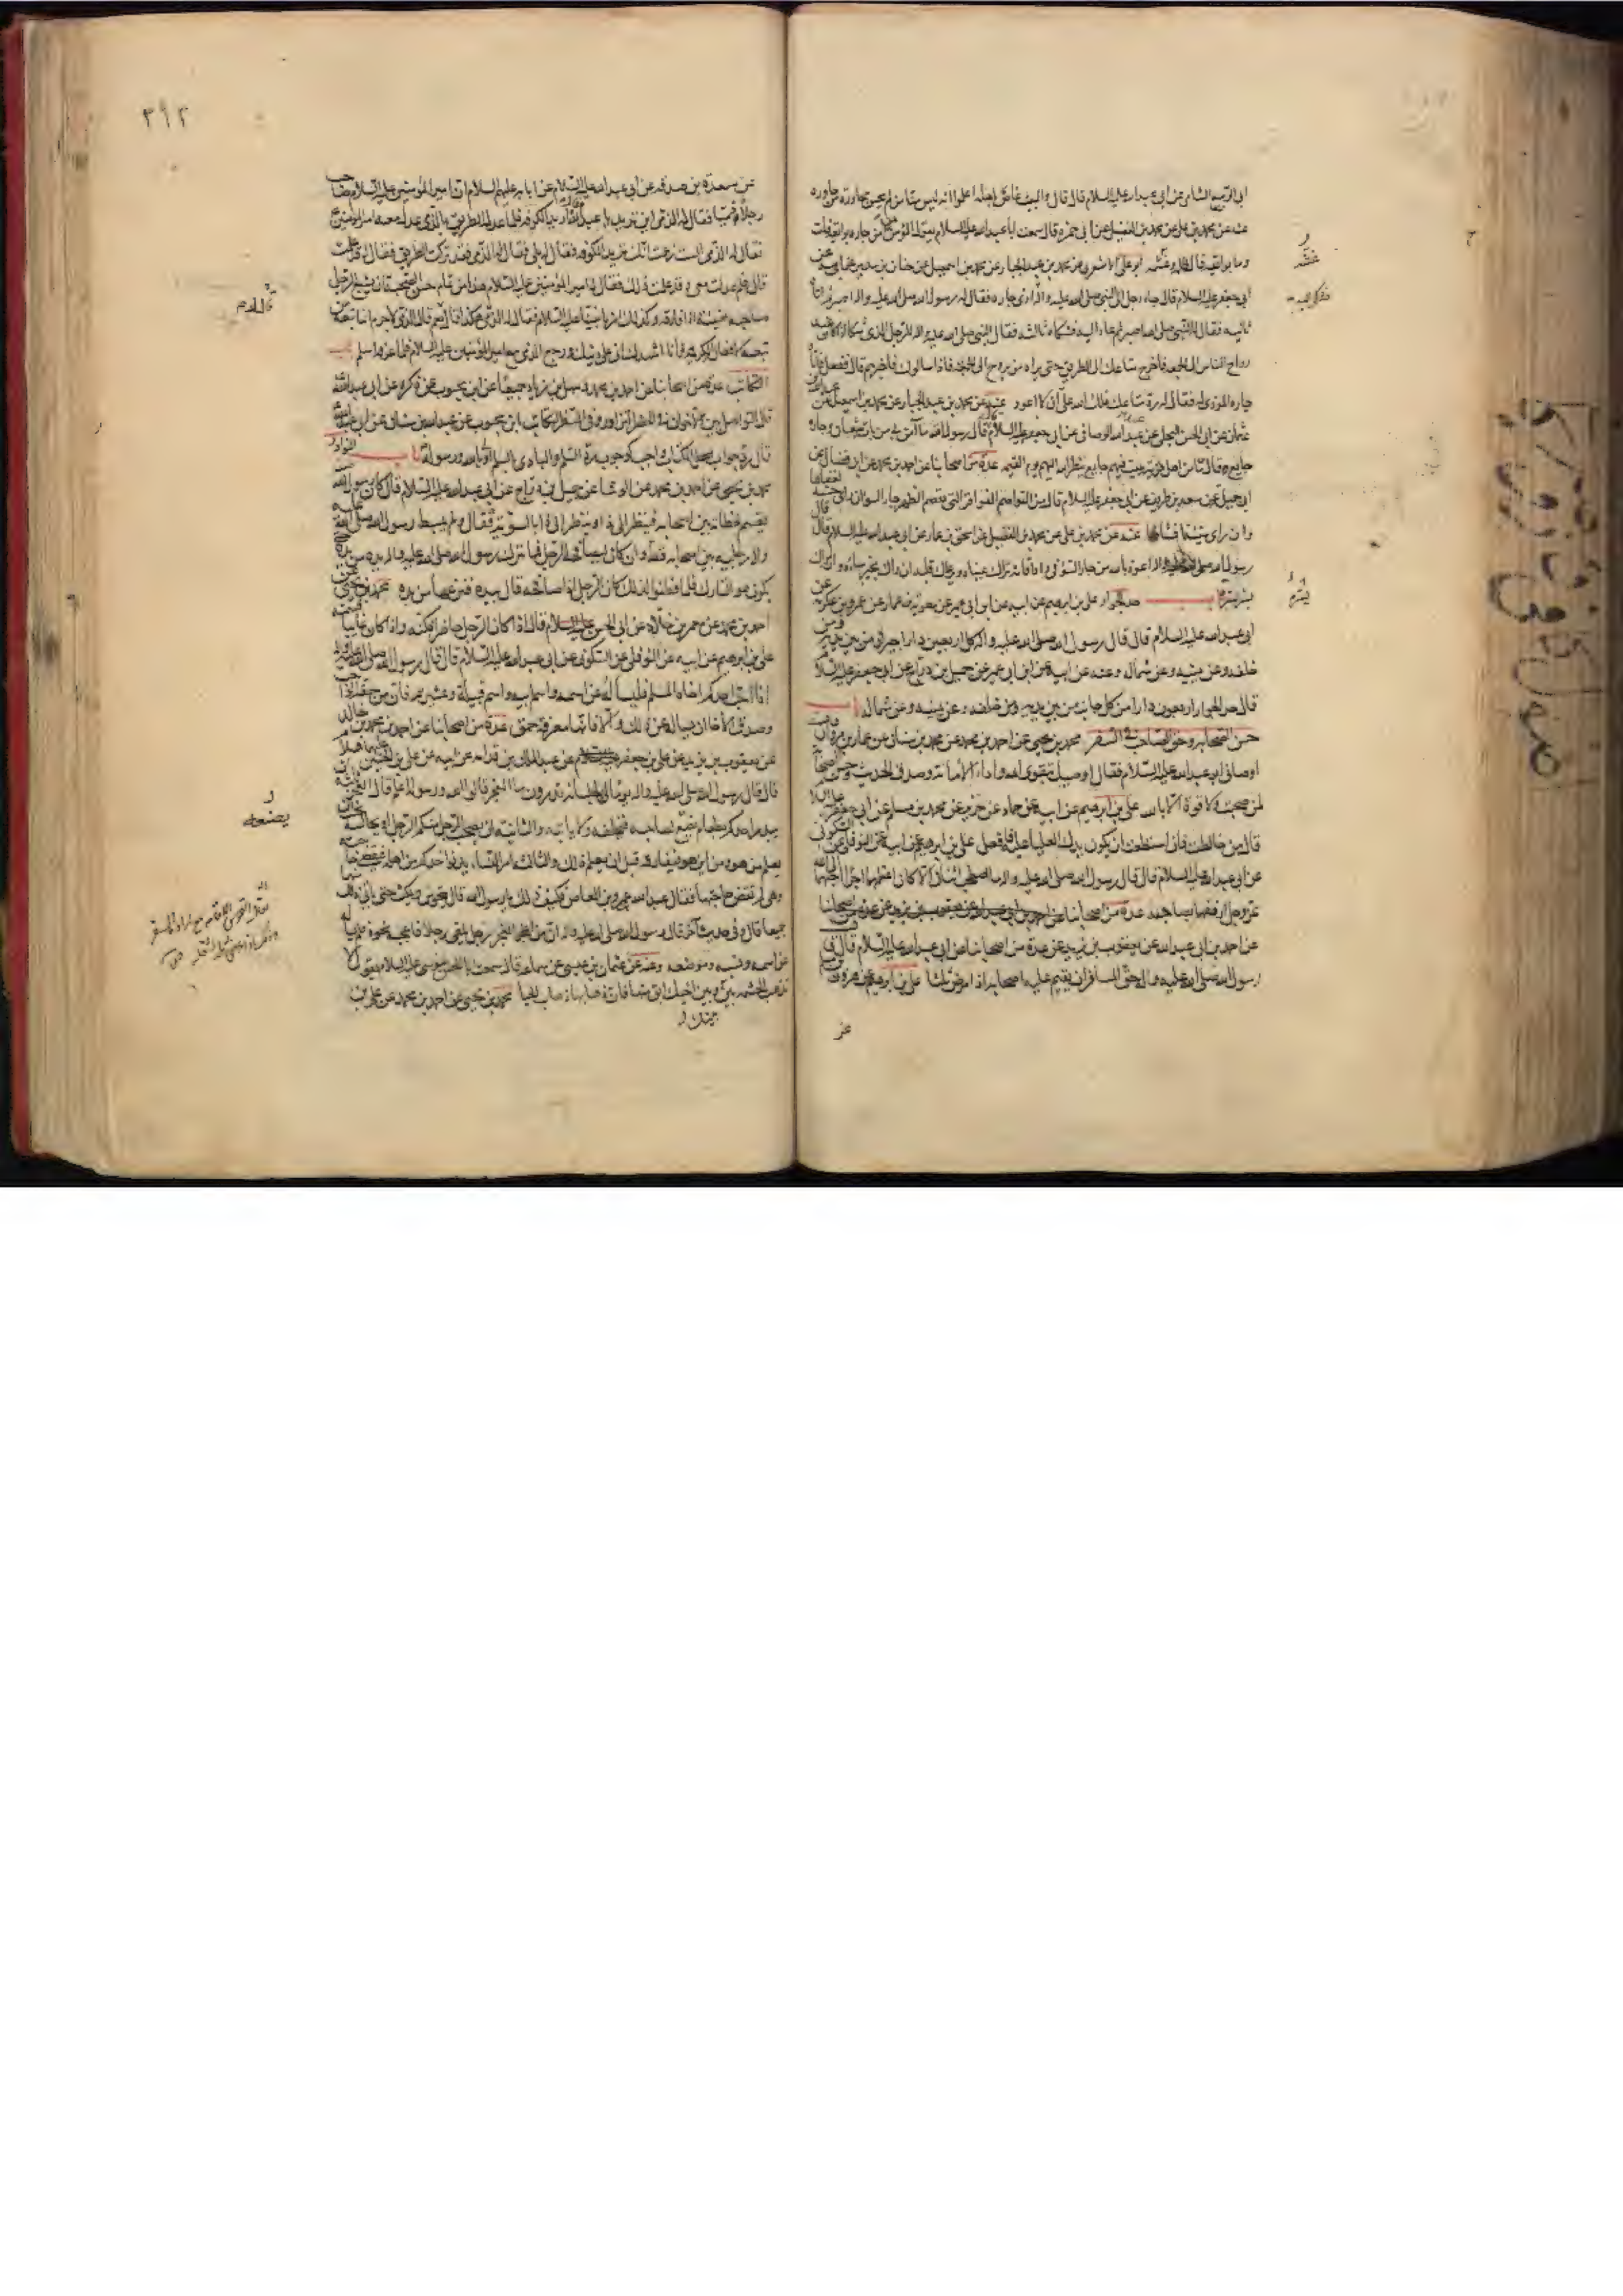 ابي الربيع الشامي عن ابي عبد الله عليه السلام قال قال والبيت غاص باهله اعلموا انه ليس منا من لم يحسن مجاورة من جاوره
عنه عن محمد بن علي عن محمد بن الفضيل عن ابي حمزه قال سمعت ابا عبد الله عليه السلام يقول المؤمن من آمن جاره بوائقه قلت
وما بوائقه قال ظلمه وغشمه ابو علي الاشعري عن محمد بن عبد الجبار عن محمد بن اسمعيل عن حنان بن سدير عن ابيه عن
ابي جعفر عليه السلام قال جاء رجل الى النبي صلى الله عليه واله فشكى اليه اذى جاره فقال له رسول الله صلى الله عليه واله اصبر ثم اتاه
ثانيه فقال له النبي صلى الله عليه واله اصبر ثم عاد اليه فشكاه ثالثه فقال النبي صلى الله عليه واله للرجل الذي شكا اذا كان عند
رواح الناس الى الجمعه فاخرج متاعك الى الطريق حتى يراه من يروح الى الجمعه فاذا سالوك فاخبرهم قال ففعل فاتاه
جاره الموذي له فقال له رد متاعك فلك الله علي ان لا اعود عنه عن محمد بن عبد الجبار عن محمد بن اسمعيل عن عبد الله بن
عثمان عن ابي الحسن البجلي عن عبيد الله الوصافي عن ابي جعفر عليه السلام قال قال رسول الله ما آمن بي من بات شبعان وجاره
جايع قال وما من اهل قرية يبيت فيهم جايع ينظر الله اليهم يوم القيمه عدة من اصحابنا عن احمد بن محمد عن ابن فضال عن
ابي جميله عن سعد بن طريف عن ابي جعفر عليه السلام قال من القواصم الفواقر التي تقصم الظهر جار السوء ان راى حسنة اخفاها
وان راى سيئة افشاها عنه عن محمد بن علي عن محمد بن الفضيل عن اسحق بن عمار عن ابي عبد الله عليه السلام قال قال
رسول الله صلى الله عليه واله اعوذ بالله من جار السوء في دار اقامة تراك عيناه ويرعاك قلبه ان راك بخير ساءه وان راك
بشر سره باب حد الجوار علي بن ابرهيم عن ابيه عن ابن ابي عمير عن معوية بن عمار عن عمرو بن عكرمة عن
ابي عبد الله عليه السلام قال قال رسول الله صلى الله عليه واله كل اربعين دارا جيران من بين يديه ومن
خلفه وعن يمينه وعن شماله وعنه عن ابيه عن ابن ابي عمير عن جميل بن دراج عن ابي جعفر عليه السلام
قال حد الجوار اربعون دارا من كل جانب من بين يديه ومن خلفه وعن يمينه وعن شماله باب
حسن الصحابه وحق الصاحب في السفر محمد بن يحيى عن احمد بن محمد عن محمد بن سنان عن عمار بن مروان قال
اوصاني ابو عبد الله عليه السلام فقال اوصيك بتقوى الله واداء الامانة وصدق الحديث وحسن الصحابة
لمن صحبت ولا قوة الا بالله علي بن ابرهيم عن ابيه عن حماد عن حريز عن محمد بن مسلم عن ابي جعفر عليه السلام
قال من خالطت فان استطعت ان يكون يدك العليا عليه فافعل علي بن ابرهيم عن ابيه عن النوفلي عن السكوني
عن ابي عبد الله عليه السلام قال قال رسول الله صلى الله عليه واله ما اصطحب اثنان الا كان اعظمهما اجرا واحبهما الى الله
عز وجل ارفقهما بصاحبه عدة من اصحابنا
عن احمد بن ابي عبد الله عن يعقوب بن يزيد عن عدة من اصحابنا عن ابي عبد الله عليه السلام قال قال
رسول الله صلى الله عليه واله حق المسافر ان يقيم عليه اصحابه اذا مرض ثلثا علي بن ابرهيم عن هرون بن مسلم
عن
غشمه
يسره
٣٩٢
عن مسعدة بن صدقه عن ابي عبد الله عليه السلام عن ابايه عليهم السلام ان امير المؤمنين عليه السلام صاحب
رجلا ذميا فقال له الذمي اين تريد يا عبد الله قال اريد الكوفه فلما عدل الطريق بالذمي عدل معه امير المؤمنين
فقال له الذمي الست زعمت انك تريد الكوفه فقال له بلى فقال له الذمي فقد تركت الطريق فقال له قد علمت
قال فلم عدلت معي وقد علمت ذلك فقال له امير المؤمنين عليه السلام هذا من تمام حسن الصحبه ان يشيع الرجل
صاحبه هنيئة اذا فارقه وكذلك امرنا نبينا عليه السلام فقال له الذمي هكذا قال نعم قال الذمي لا جرم انما تبعه من
تبعه لافعاله الكريمة فانا اشهدك اني على دينك ورجع الذمي مع امير المؤمنين عليه السلام فلما عرفه اسلم باب
التكاتب عدة من اصحابنا عن احمد بن محمد وسهل بن زياد جميعا عن ابن محبوب عمن ذكره عن ابي عبد الله
قال التواصل بين الاخوان في الحضر التزاور وفي السفر التكاتب ابن محبوب عن عبد الله بن سنان عن ابي عبد الله
قال رد جواب الكتاب واجب كوجوب رد السلم والبادي بالسلم اولى بالله ورسوله باب النوادر
محمد بن يحيى عن احمد بن محمد عن الوشا عن جميل بن دراج عن ابي عبد الله عليه السلام قال كان رسول الله
يقسم لحظاته بين اصحابه فينظر الى ذا وينظر الى ذا بالسوية قال ولم يبسط رسول الله صلى الله عليه
واله رجليه بين اصحابه قط وان كان ليصافحه الرجل فما يترك رسول الله صلى الله عليه واله يده من يده حتى
يكون هو التارك فلما فطنوا لذلك كان الرجل اذا صافحه قال بيده فنزعها من يده محمد بن يحيى عن
احمد بن محمد عن معمر بن خلاد عن ابي الحسن عليه السلام قال اذا كان الرجل حاضرا فكنه واذا كان غايبا فسمه
علي بن ابرهيم عن ابيه عن النوفلي عن السكوني عن ابي عبد الله عليه السلام قال قال رسول الله صلى الله عليه واله
اذا احب احدكم اخاه المسلم فليسأله عن اسمه واسم ابيه واسم قبيلته وعشيرته فان من حقه الواجب
وصدق الاخاء ان يساله عن ذلك والا فانها معرفة حمق عدة من اصحابنا عن احمد بن محمد بن خالد
عن يعقوب بن يزيد عن علي بن جعفر عن عبد الملك بن قدامه عن ابيه عن علي بن الحسين عليهما السلام
قال قال رسول الله صلى الله عليه واله يوما لجلسائه تدرون ما العجز قالوا الله ورسوله اعلم فقال العجز ثلثة ان
يبدر احدكم بطعام يصنع لصاحبه فيخلفه ولا ياتيه والثانيه ان يصحب الرجل منكم الرجل او يجالسه يحب ان
يعلم من هو ومن اين هو فيفارقه قبل ان يعلم ذلك والثالثه امر النساء يدنو احدكم من اهله فيقضي حاجته
وهي لم تقض حاجتها فقال عبد الله بن عمرو بن العاص فكيف ذلك يا رسول الله قال يتحوش ويمكث حتى ياتي ذلك منهما
جميعا قال وفي حديث آخر قال رسول الله صلى الله عليه واله ان من اعجز العجز رجل يلقى رجلا فاعجبه نحوه فلم يساله
عن اسمه ونسبه وموضعه وعنه عن عثمان بن عيسى عن سماعه قال سمعت ابا الحسن موسى عليه السلام يقول لا
تذهب الحشمه بينك وبين اخيك ابق منها فان ذهابها ذهاب الحيا محمد بن يحيى عن احمد بن محمد عن علي بن
يصنعه